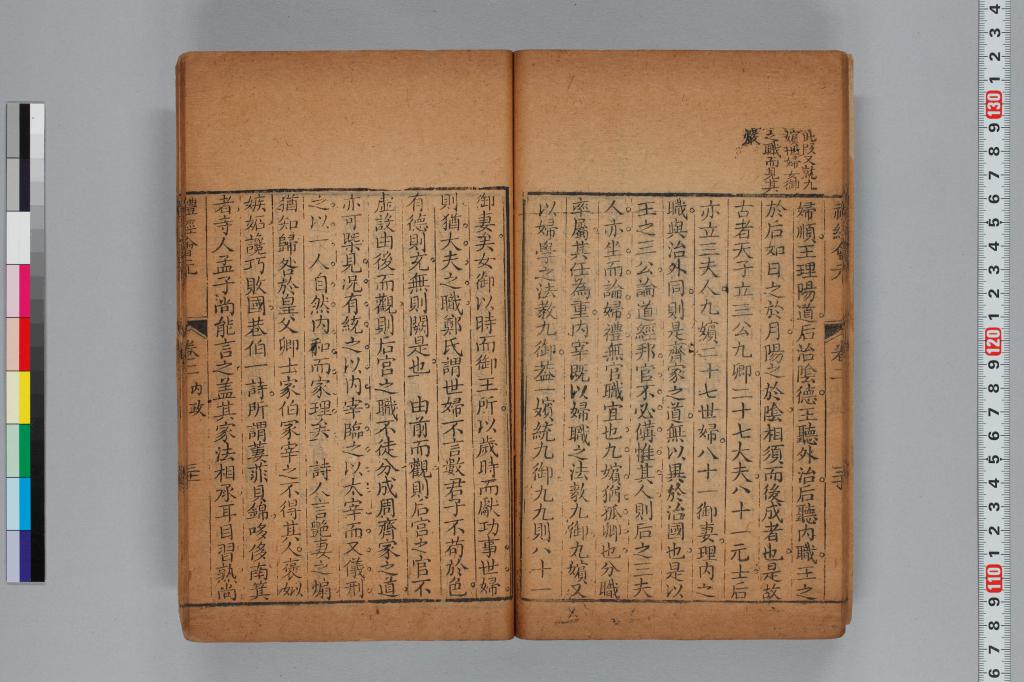 此段又就九
嬪世婦女御
之職而見其
嚴
禮經會元 卷二
婦順王理陽道后治陰德王聽外治后聽內職王之
於后如日之於月陽之於陰相須而後成者也是故
古者天子立三公九卿二十七大夫八十一元士后
亦立三夫人九嬪二十七世婦八十一御妻理內之
職與治外同則是齊家之道無以異於治國也是以
王之三公論道經邦官不必備惟其人則后之三夫
人亦坐而論婦禮無官職宜也九嬪猶孤卿也分職
率屬其任為重內宰既以婦職之法教九御九嬪又
以婦學之法教九御蓋一嬪統九御九九則八十一
御妻矣女御以時而御王所以歲時而獻功事世婦
則猶大夫之職鄭氏謂世婦不言數君子不苟於色
有德則充無則闕是也 由前而觀則后宮之官不
虛設由後而觀則后宮之職不徒分成周齊家之道
亦可槩見况有統之以內宰臨之以太宰而又儀刑
之以一人自然內和而家理矣 詩人言豔妻之煽
猶知歸咎於皇父卿士家伯冢宰之不得其人褒姒
嫉妬讒巧敗國巷伯一詩所謂萋菲貝錦哆侈南箕
者寺人孟子尚能言之盖其家法相承耳目習熟尚
禮經會元 卷二 內政 三十一